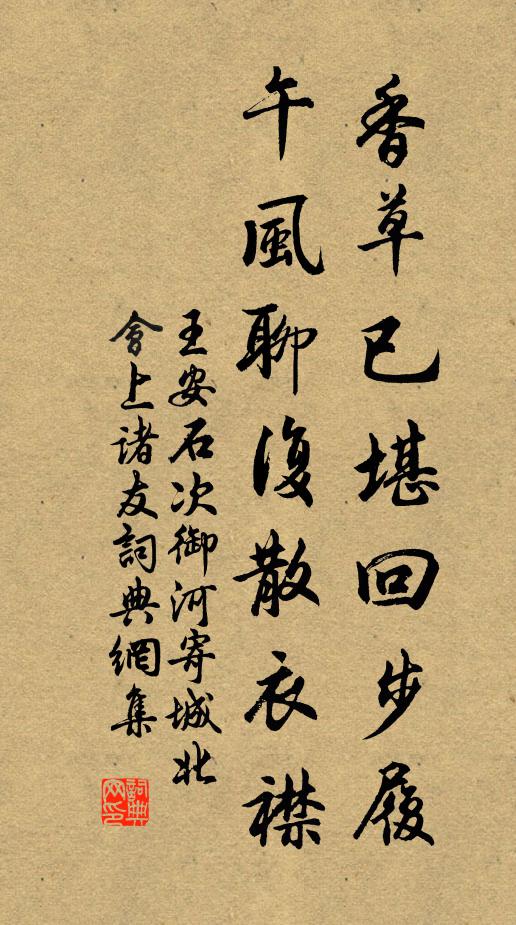 香草已堪回步履
午風聊復散衣襟
王安石次御河寄城北
會上诸友詞典網集
詞典
网印